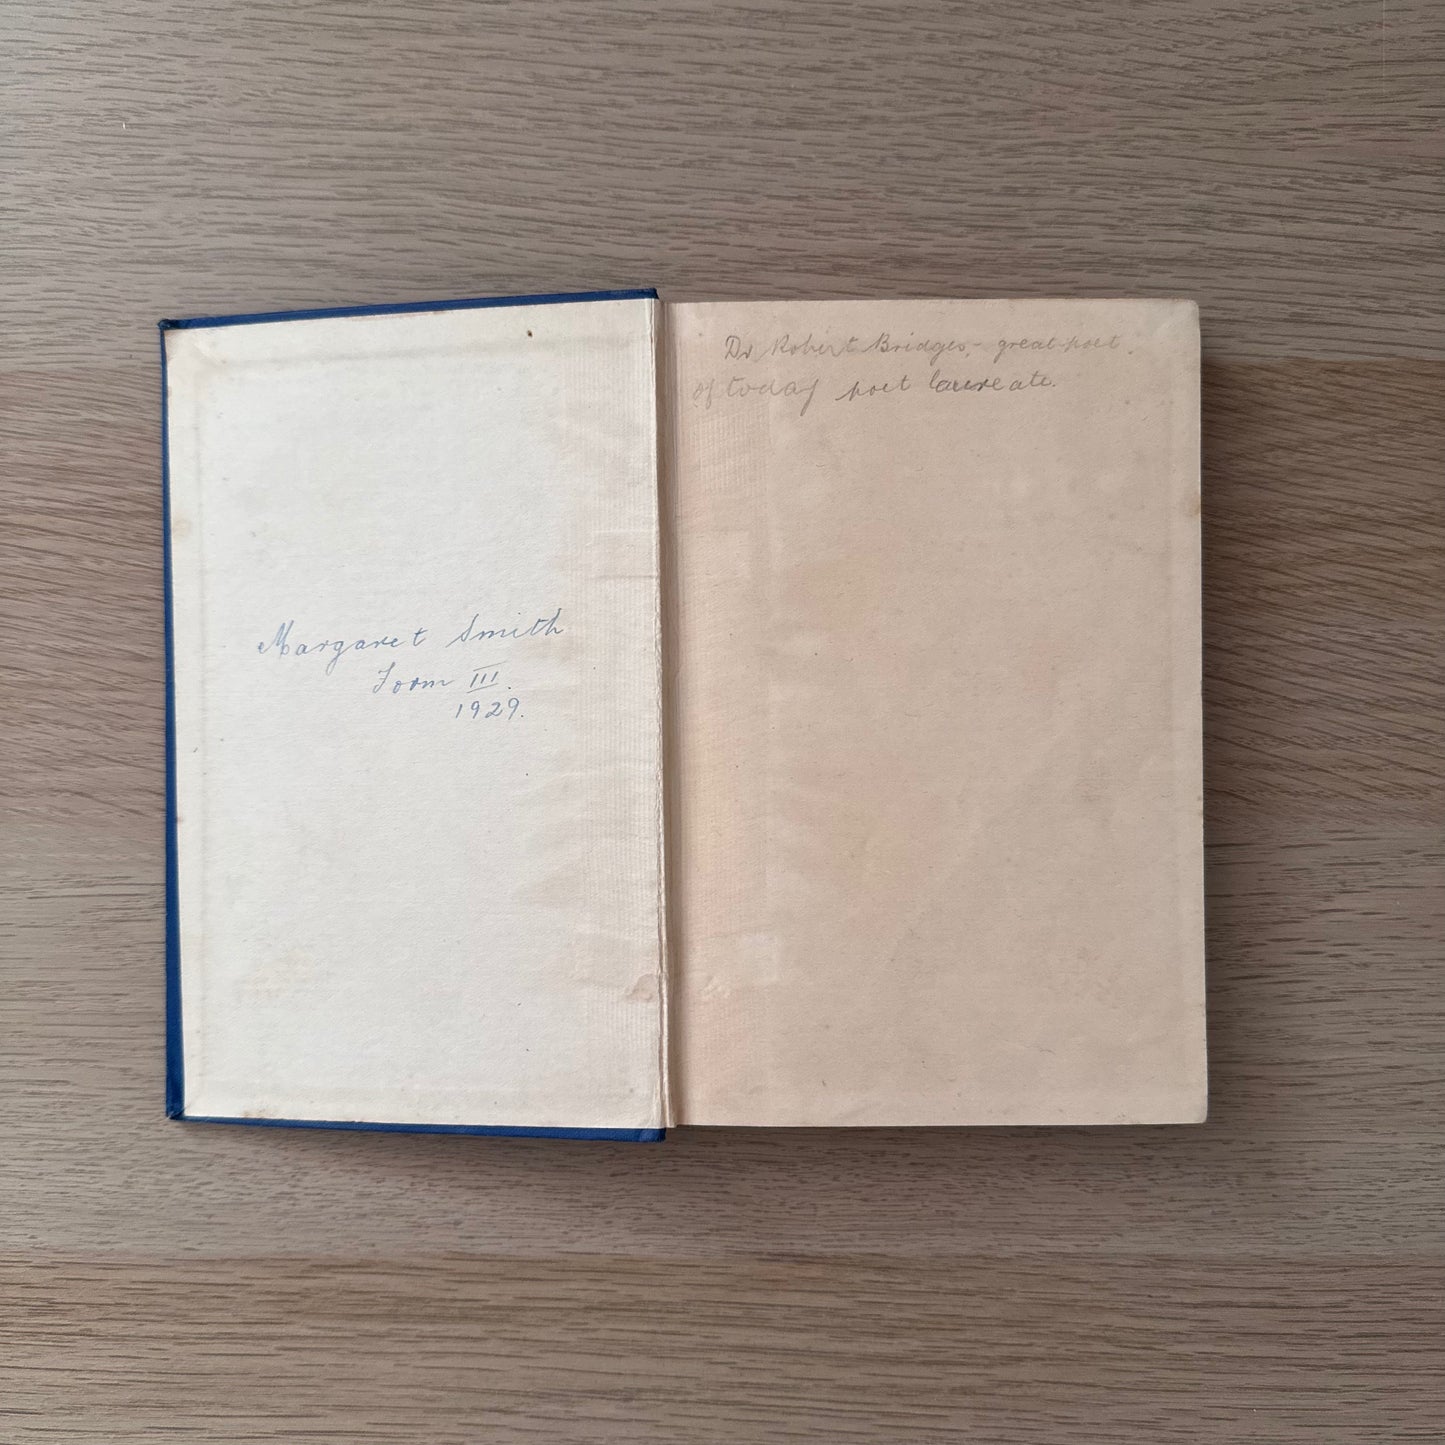 Margaret Smith
Form III.
1929.
Dr Robert Bridges, - great poet
of today poet laureate.